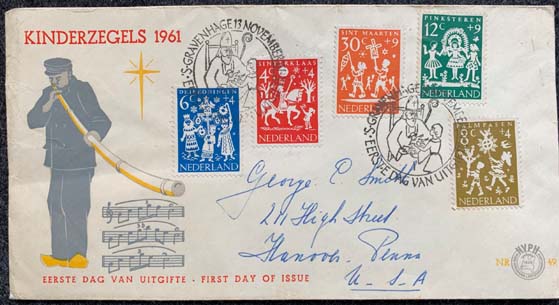 KINDERZEGELS 1961
'S-GRAVENHAGE 13 NOVEMBER
DRIEKONINGEN
6c +4
NEDERLAND
SINTERKLAAS
4c +4
NEDERLAND
SINT MAARTEN
30c +9
NEDERLAND
PINKSTEREN
12c +9
NEDERLAND
'S-GRAVENHAGE
EERSTE DAG VAN
PALMPASEN
8c +4
NEDERLAND
George C. Smith
High Street
Hanover - Penna
U. S. A
EERSTE DAG VAN UITGIFTE - FIRST DAY OF ISSUE
NR
NVPH
49